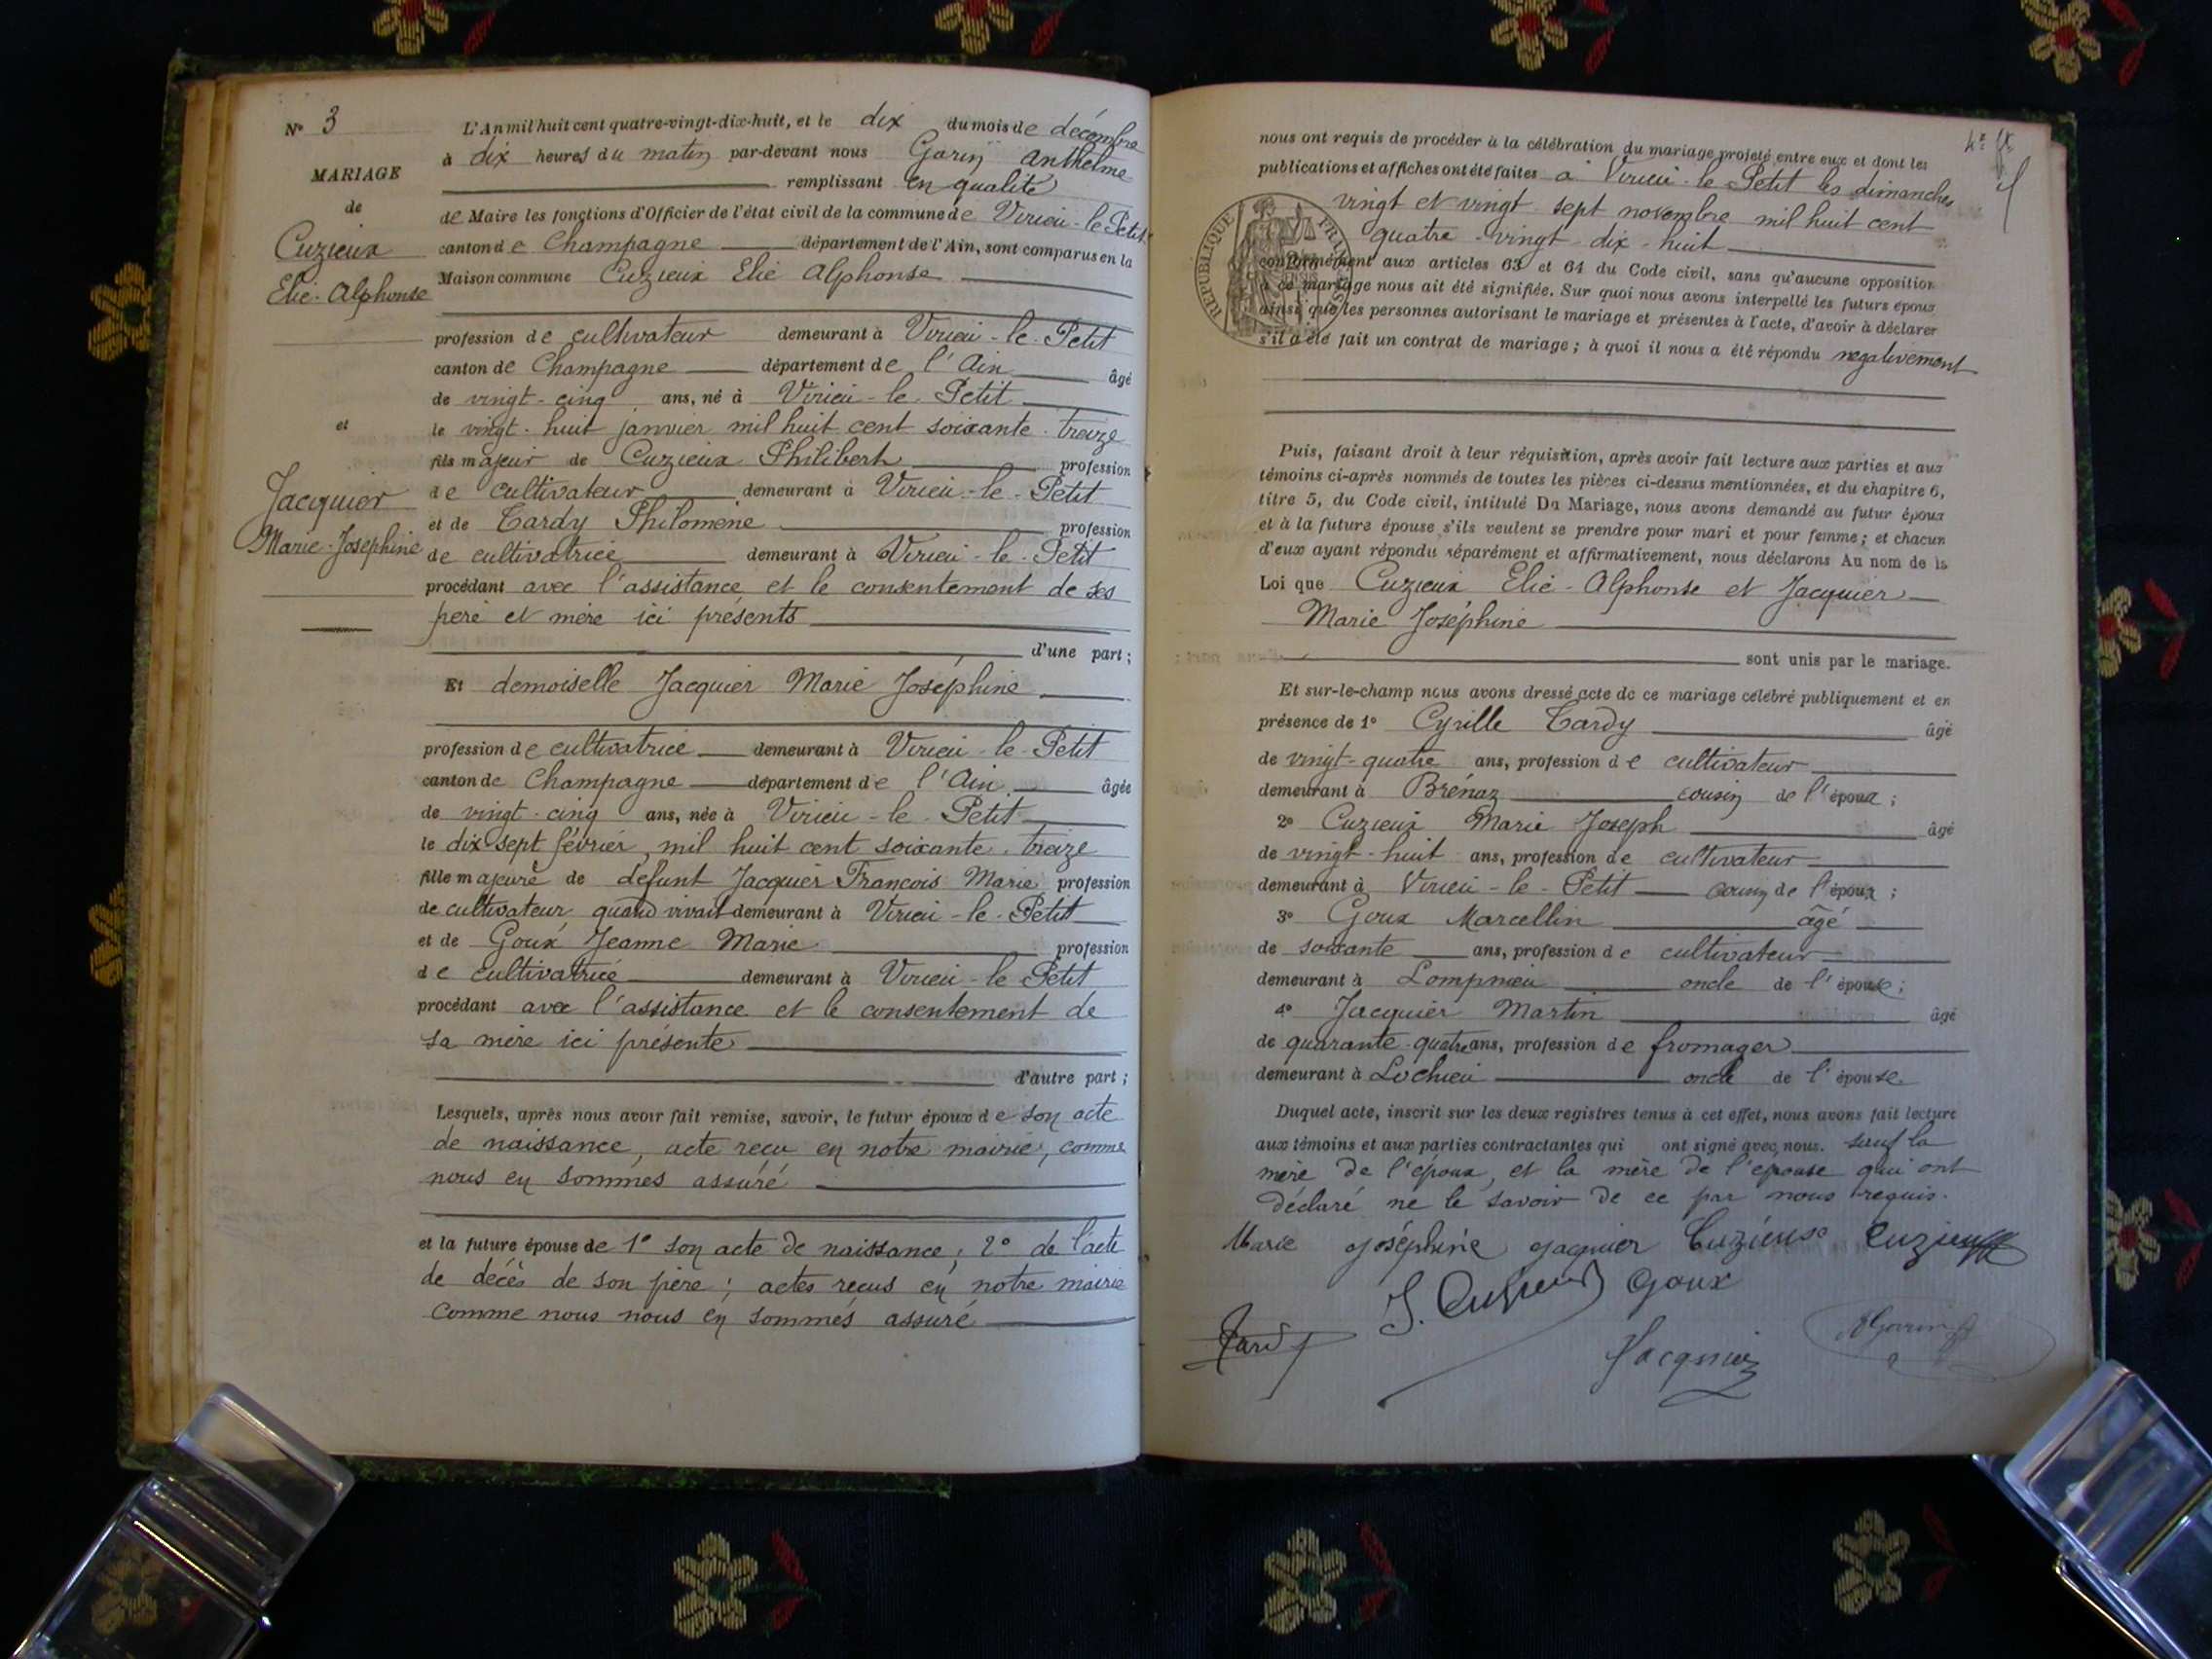 N° 3
MARIAGE
de
Cuzieux
Elie-Alphonse
et
Jacquier
Marie-Joséphine
L'An mil huit cent quatre-vingt-dix-huit, et le dix du mois de décembre
à dix heures du matin par-devant nous Garin Anthelme
remplissant en qualité
de Maire les fonctions d'Officier de l'état civil de la commune de Virieu-le-Petit
canton de Champagne département de l'Ain, sont comparus en la
Maison commune Cuzieux Elie Alphonse
profession de cultivateur demeurant à Virieu-le-Petit
canton de Champagne département de l'Ain âgé
de vingt-cinq ans, né à Virieu-le-Petit
le vingt-huit janvier mil huit cent soixante-treize
fils majeur de Cuzieux Philibert profession
de cultivateur demeurant à Virieu-le-Petit
et de Tardy Philomène profession
de cultivatrice demeurant à Virieu-le-Petit
procédant avec l'assistance et le consentement de ses
père et mère ici présents
d'une part;
Et demoiselle Jacquier Marie Joséphine
profession de cultivatrice demeurant à Virieu-le-Petit
canton de Champagne département de l'Ain âgée
de vingt-cinq ans, née à Virieu-le-Petit
le dix sept février, mil huit cent soixante-treize
fille majeure de défunt Jacquier François Marie profession
de cultivateur quand vivait demeurant à Virieu-le-Petit
et de Goux Jeanne Marie profession
de cultivatrice demeurant à Virieu-le-Petit
procédant avec l'assistance et le consentement de
sa mère ici présente
d'autre part;
Lesquels, après nous avoir fait remise, savoir, le futur époux de son acte
de naissance, acte reçu en notre mairie, comme
nous en sommes assuré
et la future épouse de 1° son acte de naissance; 2° de l'acte
de décès de son père; actes reçus en notre mairie
comme nous nous en sommes assuré
nous ont requis de procéder à la célébration du mariage projeté entre eux et dont les
publications et affiches ont été faites à Virieu-le-Petit les dimanches
vingt et vingt-sept novembre mil huit cent
quatre-vingt-dix-huit
REPUBLIQUE FRANÇAISE
conformément aux articles 63 et 64 du Code civil, sans qu'aucune opposition
à ce mariage nous ait été signifiée. Sur quoi nous avons interpellé les futurs époux
ainsi que les personnes autorisant le mariage et présentes à l'acte, d'avoir à déclarer
s'il a été fait un contrat de mariage; à quoi il nous a été répondu négativement
Puis, faisant droit à leur réquisition, après avoir fait lecture aux parties et aux
témoins ci-après nommés de toutes les pièces ci-dessus mentionnées, et du chapitre 6,
titre 5, du Code civil, intitulé Du Mariage, nous avons demandé au futur époux
et à la future épouse s'ils veulent se prendre pour mari et pour femme; et chacun
d'eux ayant répondu séparément et affirmativement, nous déclarons Au nom de la
Loi que Cuzieux Elie-Alphonse et Jacquier
Marie Joséphine
sont unis par le mariage.
Et sur-le-champ nous avons dressé acte de ce mariage célébré publiquement et en
présence de 1° Cyrille Tardy âgé
de vingt-quatre ans, profession de cultivateur
demeurant à Brénaz cousin de l'époux;
2° Cuzieux Marie Joseph âgé
de vingt-huit ans, profession de cultivateur
demeurant à Virieu-le-Petit cousin de l'époux;
3° Goux Marcellin âgé
de soixante ans, profession de cultivateur
demeurant à Lompnieu oncle de l'épouse;
4° Jacquier Martin âgé
de quarante-quatre ans, profession de fromager
demeurant à Lochieu oncle de l'épouse
Duquel acte, inscrit sur les deux registres tenus à cet effet, nous avons fait lecture
aux témoins et aux parties contractantes qui ont signé avec nous. sauf la
mère de l'époux, et la mère de l'épouse qui ont
déclaré ne le savoir de ce par nous requis.
Marie Joséphine Jaquier Cuzieux Cuzieux
J. Cuzieux Goux
Tardy
Jacquier
AGarin